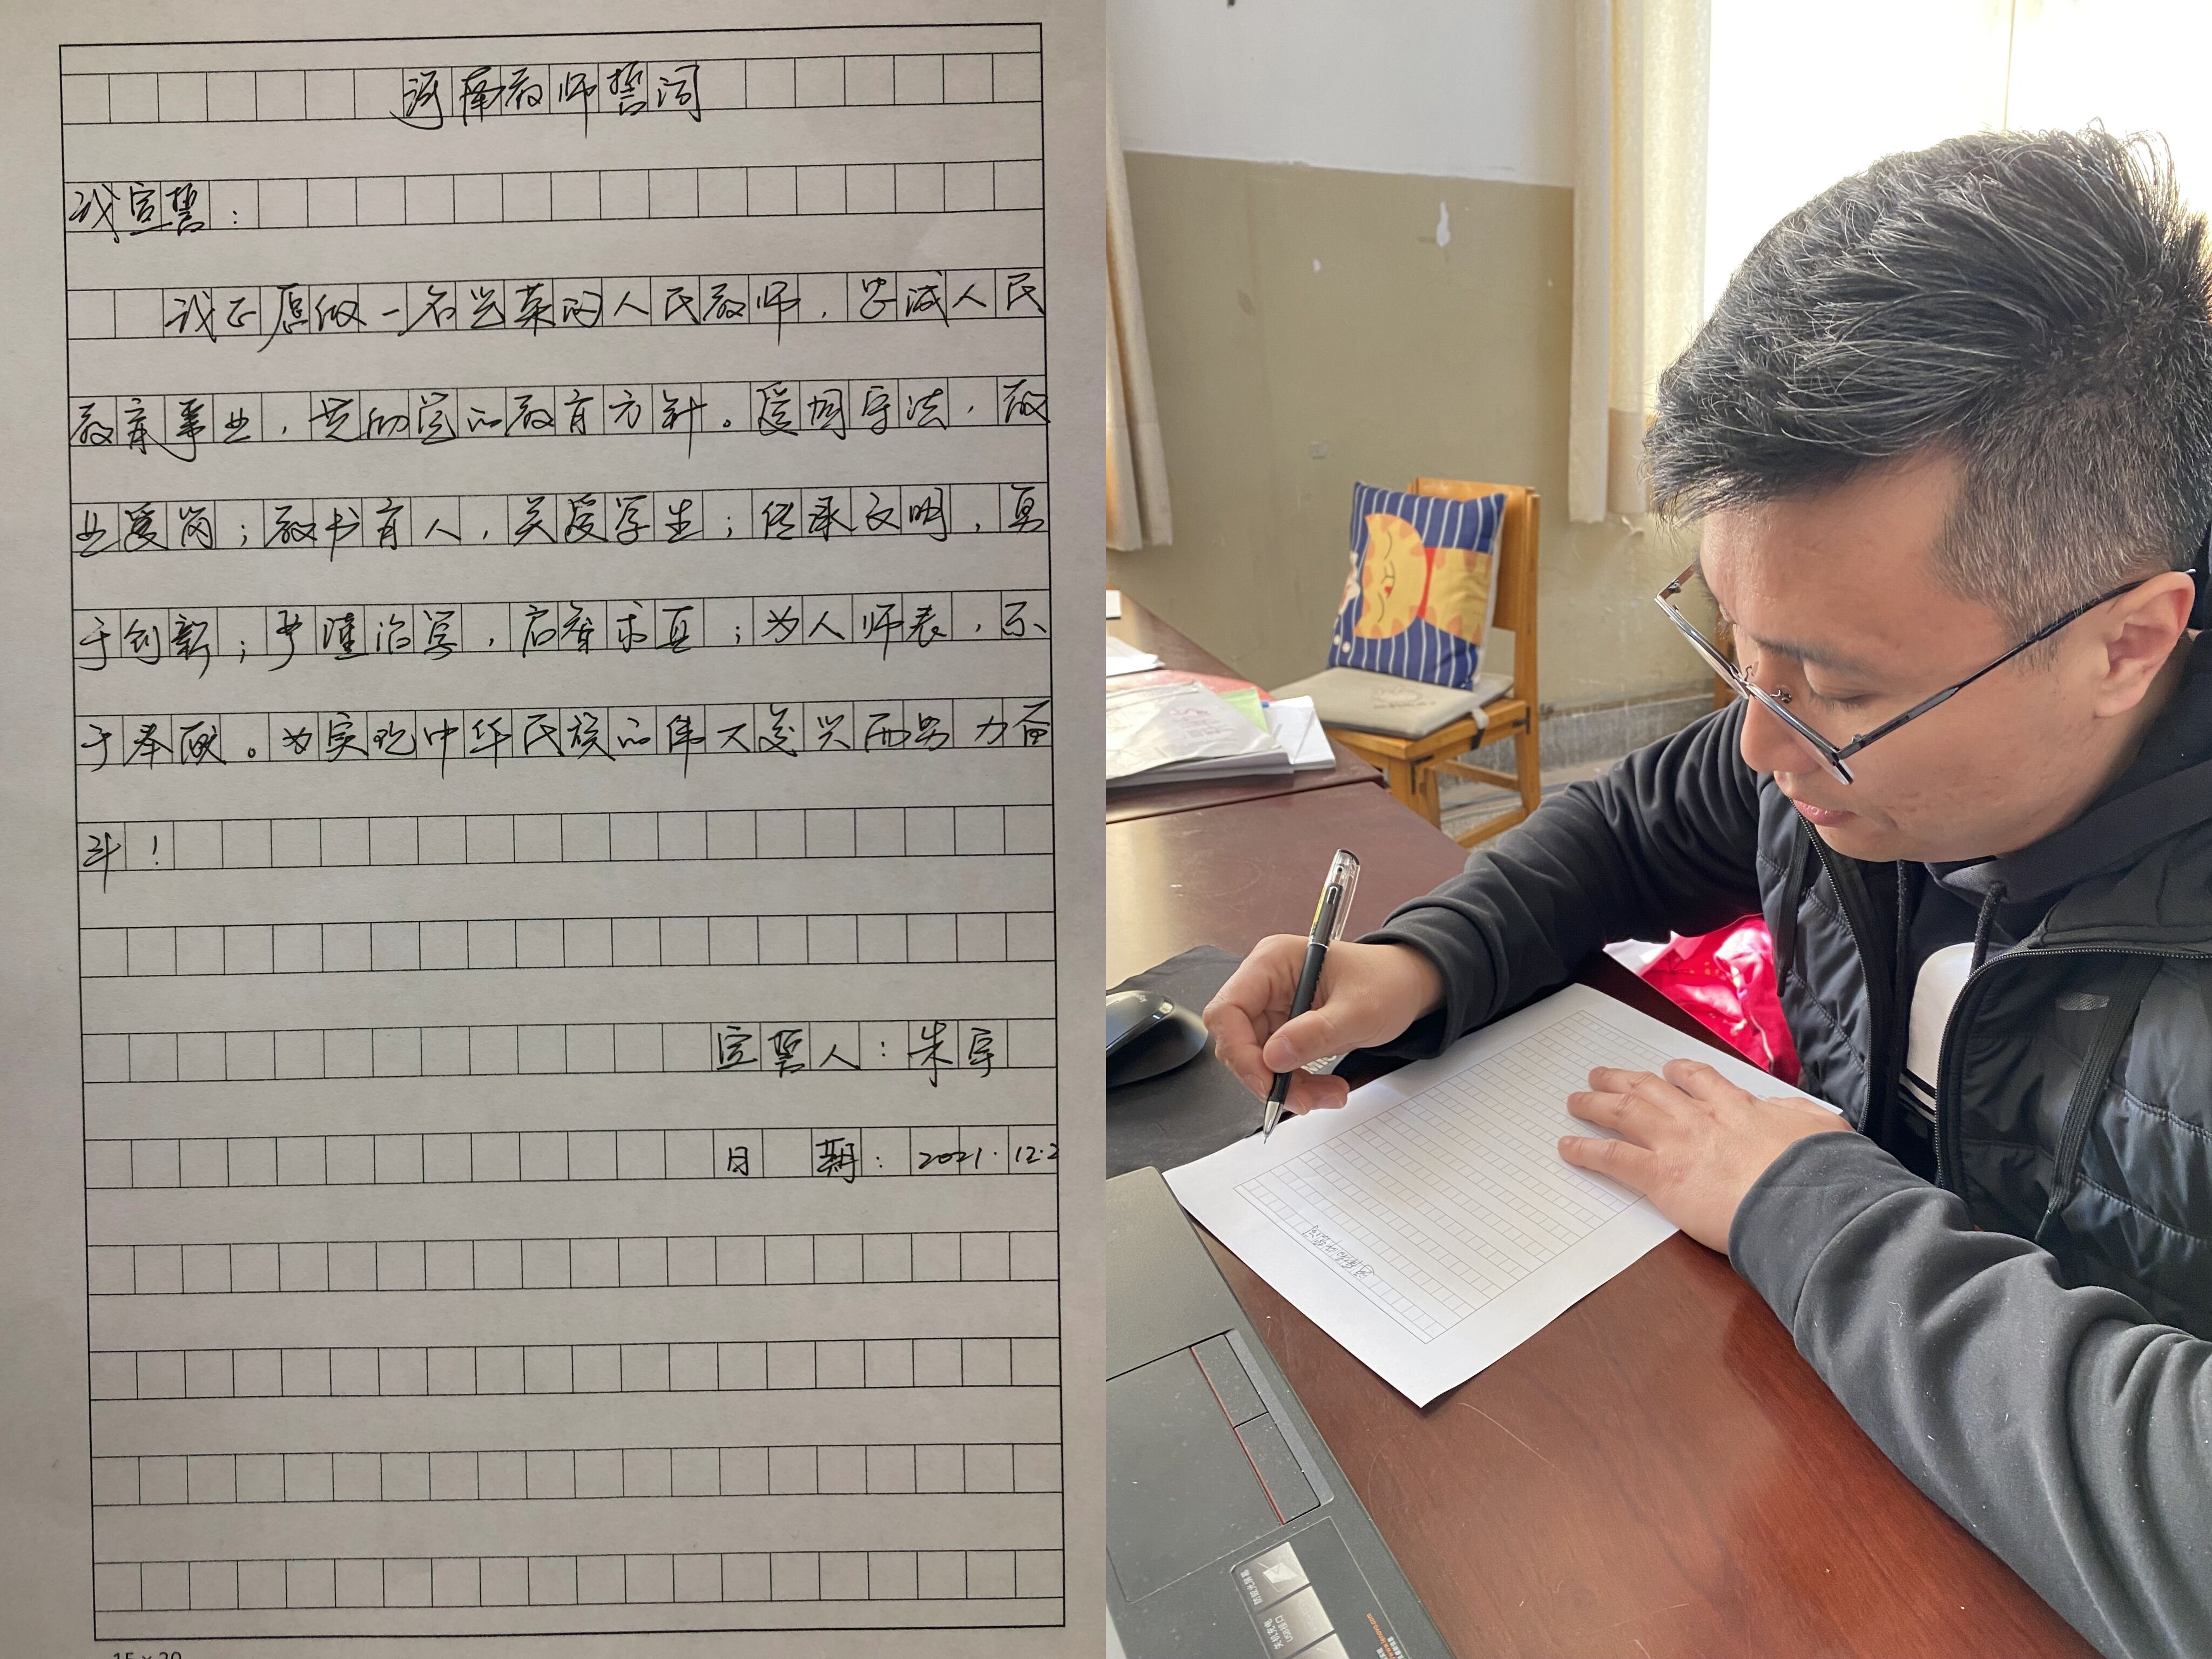 河南教师誓词
我宣誓：
我志愿做一名光荣的人民教师，忠诚人民
教育事业，党的的教育方针。爱国守法，敬
业爱岗；教书育人，关爱学生；传承文明，勇
于创新；严谨治学，启智求真；为人师表，乐
于奉献。为实现中华民族的伟大复兴而努力奋
斗！
宣誓人：朱宇
日期：2021.12.2
15×20
河南教师誓词